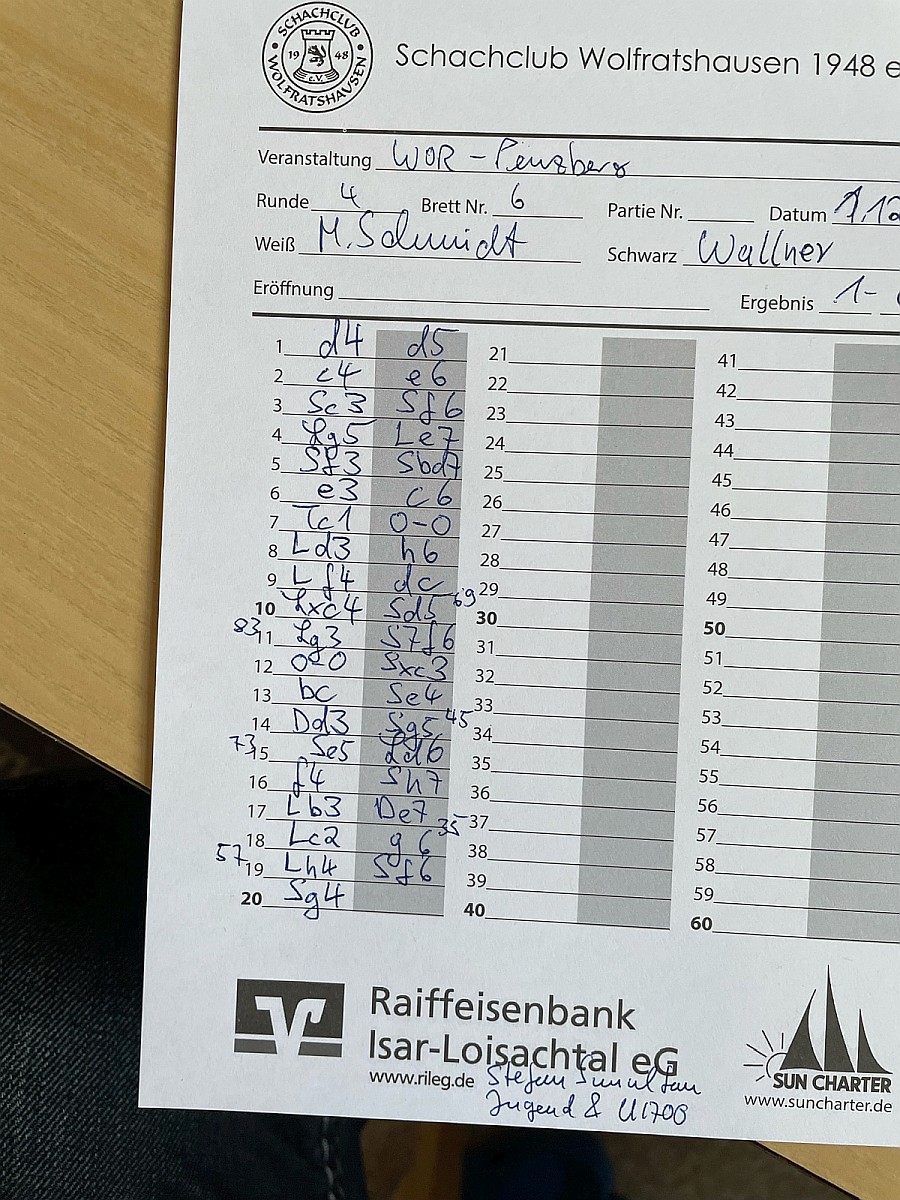 SCHACHCLUB
19 48
e.V.
WOLFRATSHAUSEN
Schachclub Wolfratshausen 1948 e
Veranstaltung WOR - Penzberg
Runde 4 Brett Nr. 6 Partie Nr. Datum 1.12
Weiß M. Schmidt Schwarz Wallner
Eröffnung Ergebnis 1-
1 d4 d5
2 c4 e6
3 Sc3 Sf6
4 Lg5 Le7
5 Sf3 Sbd7
6 e3 c6
7 Tc1 0-0
8 Ld3 h6
9 Lf4 dc
10 Lxc4 Sd5 69
83 11 Lg3 S7f6
12 0-0 Sxc3
13 bc Se4
14 Dd3 Sg5 45
73 15 Se5 Ld6
16 f4 Sh7
17 Lb3 De7
18 Lc2 g6 35
57 19 Lh4 Sf6
20 Sg4
21
22
23
24
25
26
27
28
29
30
31
32
33
34
35
36
37
38
39
40
41
42
43
44
45
46
47
48
49
50
51
52
53
54
55
56
57
58
59
60
Raiffeisenbank
Isar-Loisachtal eG
www.rileg.de
Stefan
Jugend & U1700
SUN CHARTER
www.suncharter.de